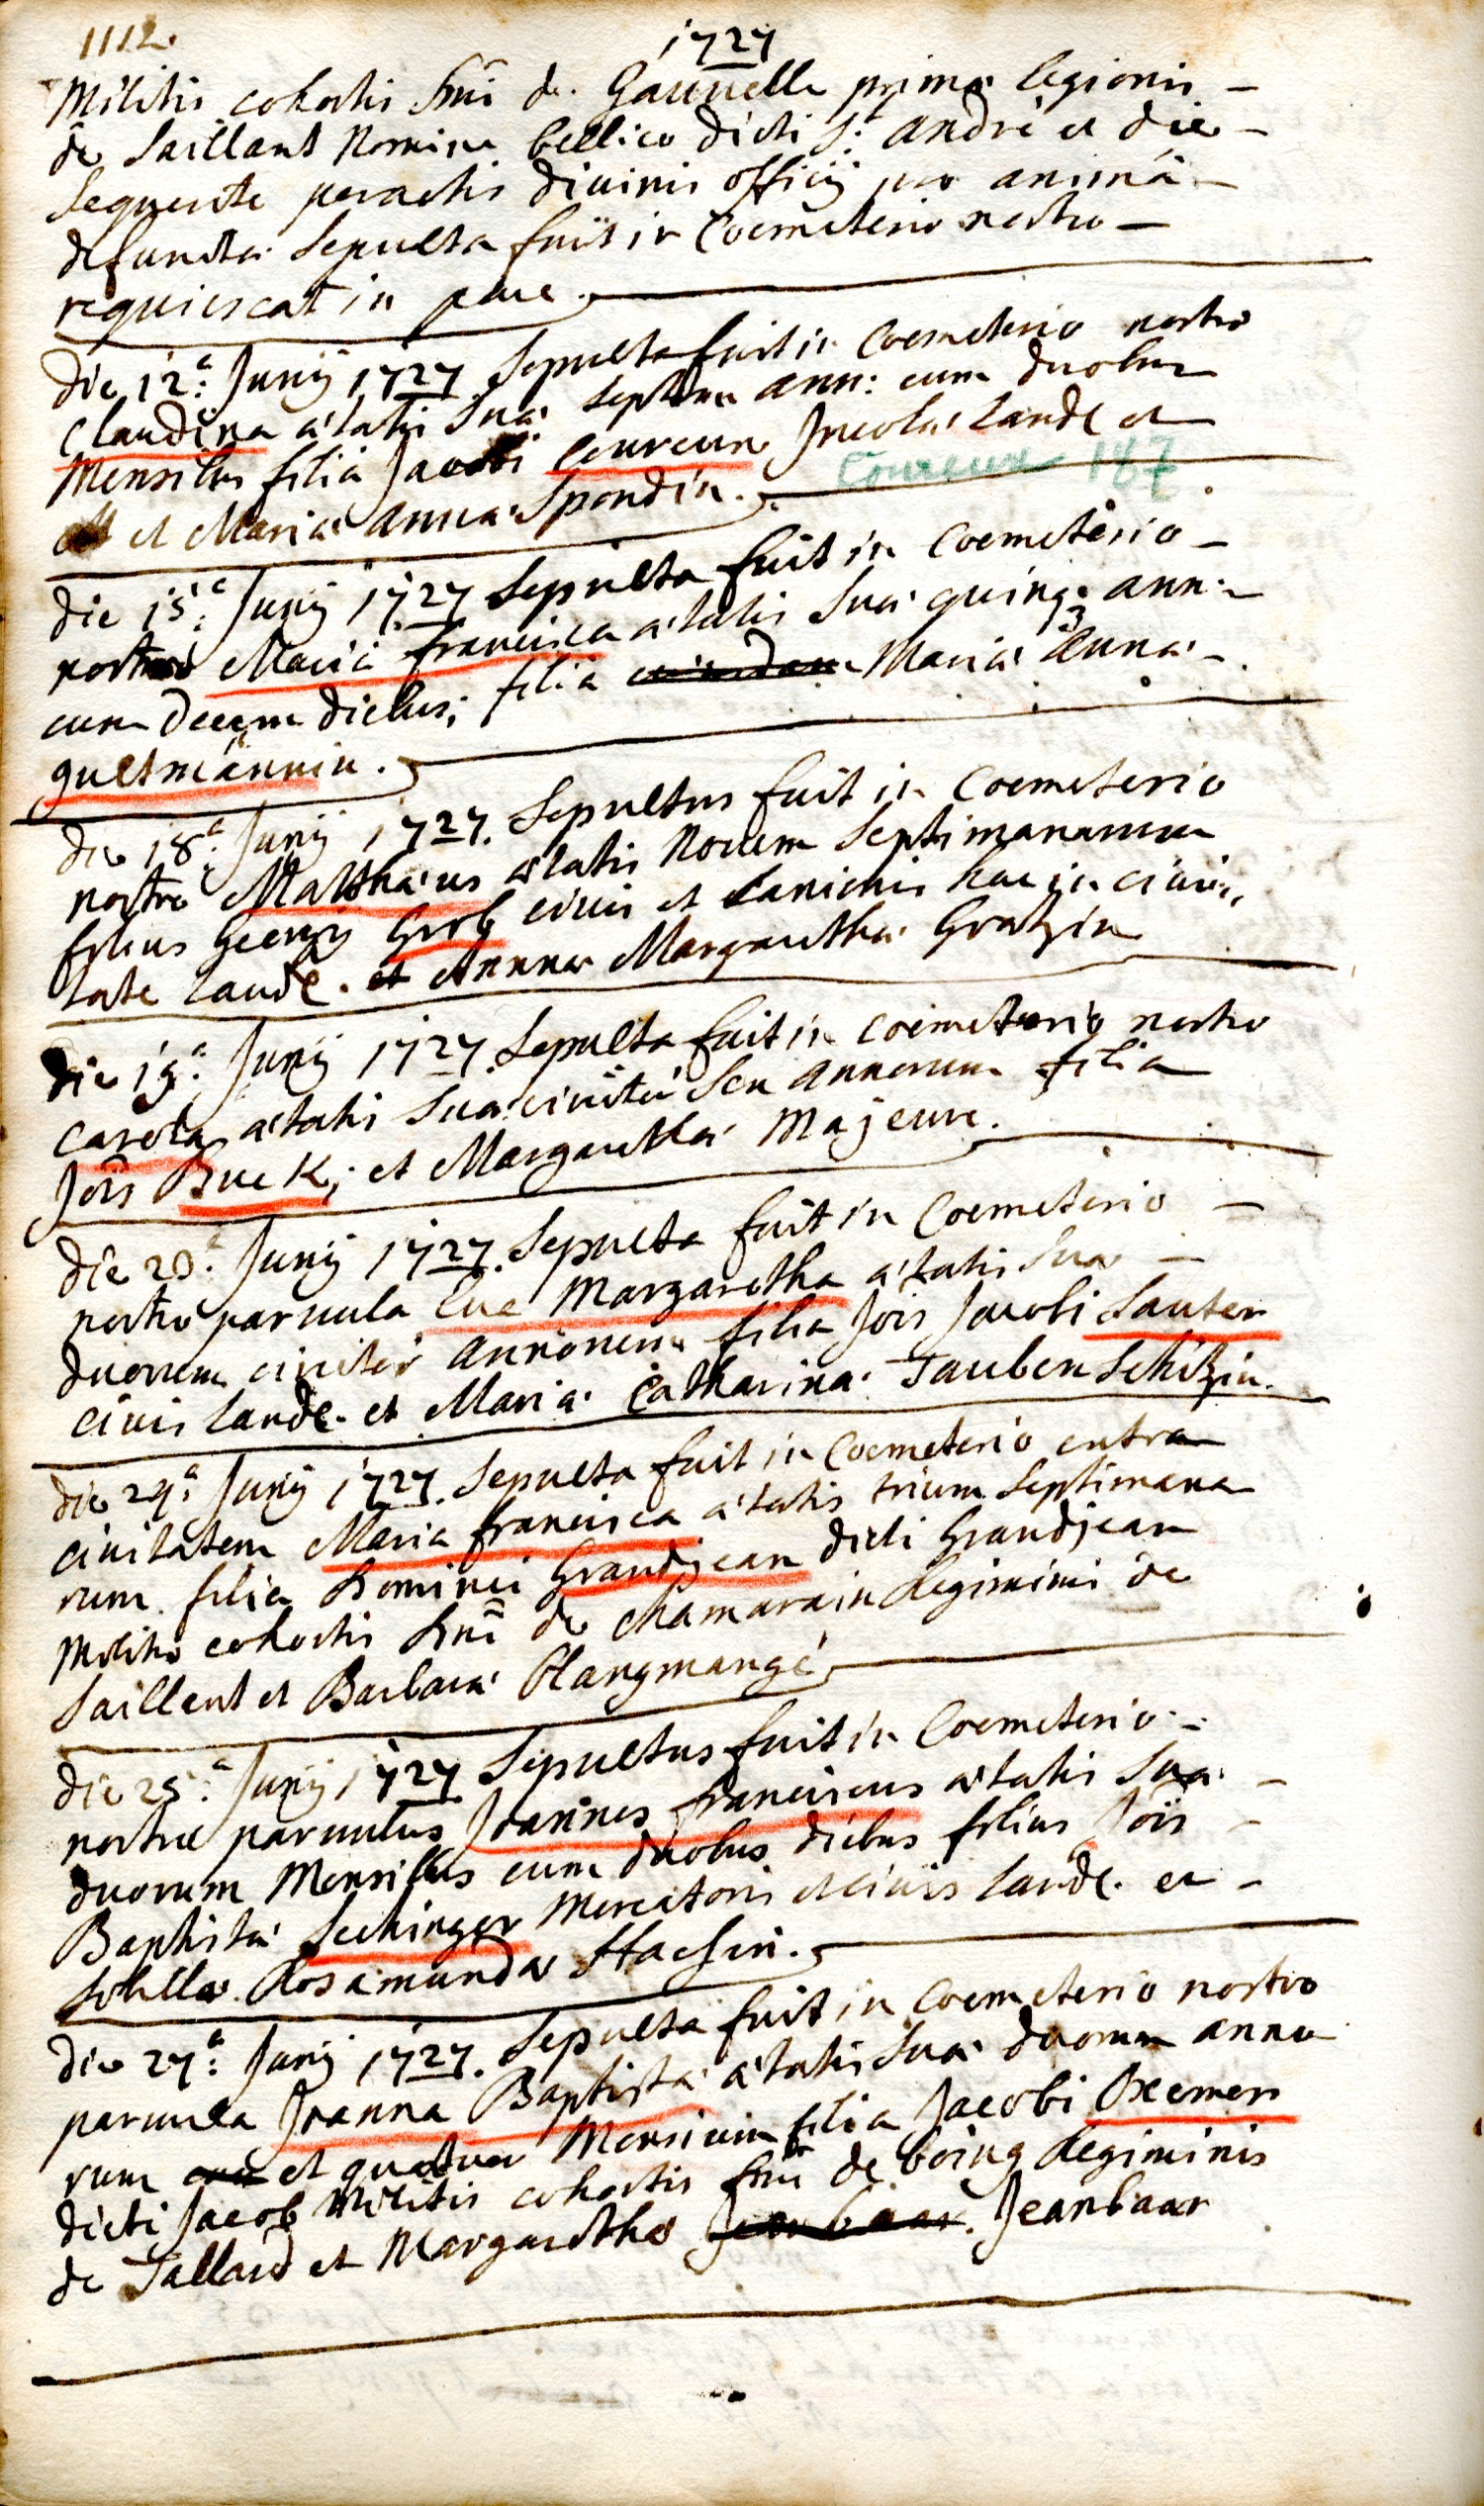 1112.
1727
Militis cohortis Dni de Gaunelle primæ legionis –
de Saillant Nomine bellico dicti St. andré et die –
sequente peractis divinis officijs pro animâ –
defunctæ sepulta fuit in Coemeterio nostro –
requiescat in pace.
die 12a. Junij 1727 Sepulta fuit in Coemeterio nostro
Claudina ætatis Suæ septem ann: cum duobus
Mensibus filia Jacobi Coureur Incolæ Land. et
Coureur 187
et Mariæ annæ Spondin.
die 15a. Junij 1727 Sepulta fuit in Coemeterio –
nostro Maria francisca ætatis Suæ quinq3 ann:
cum decem diebus; filia Mariæ Annæ –
gueltmännin.
die 18a. Junij 1727. Sepultus fuit in Coemeterio
nostro Matthæus ætatis Novem Septimanarum
filius Georgij Grob civis et Lanionis hac in civi„
tate Laud. et Annæ Margarethæ Gratzin
die 19a. Junij 1727. Sepulta fuit in Coemeterio nostro
Carola ætatis Suæ circiter Sex Annorum filia
Jois Buck; et Margarethæ Majeure.
die 20a. Junij 1727. Sepulta fuit in Coemeterio –
nostro parvula Eve Margaretha ætatis Suæ –
duorum circiter annorum filia Jois Jacobi Sauter
civis Land. et Mariæ Catharinæ Taubenschitzin.
die 24a. Junij 1727. Sepulta fuit in Coemeterio extra
civitatem Maria francisca ætatis trium Septimana
rum filia Dominici Grandjean dicti Grandjean
Militis cohortis Dni de Chamarain Regiminis de
Saillent et Barbaræ Blangmangé
die 25a. Junij 1727 Sepultus fuit in Coemeterio –
nostro parvulus Joannes franciscus ætatis Suæ –
duorum Mensibus cum duobus diebus filius Jois –
Baptistæ Sechinger Mercatoris et civis Land. et –
Rosamundæ Stachin.
die 27a. Junij 1727. Sepulta fuit in Coemeterio nostro
parvula Joanna Baptista ætatis Suæ duorum anno
rum et quatuor Mensium filia Jacobi Oxemer
dicti Jacob Militis cohortis Dni de boing Regiminis
de Tallard et Margarethæ Jeanbaar. Jeanbaar